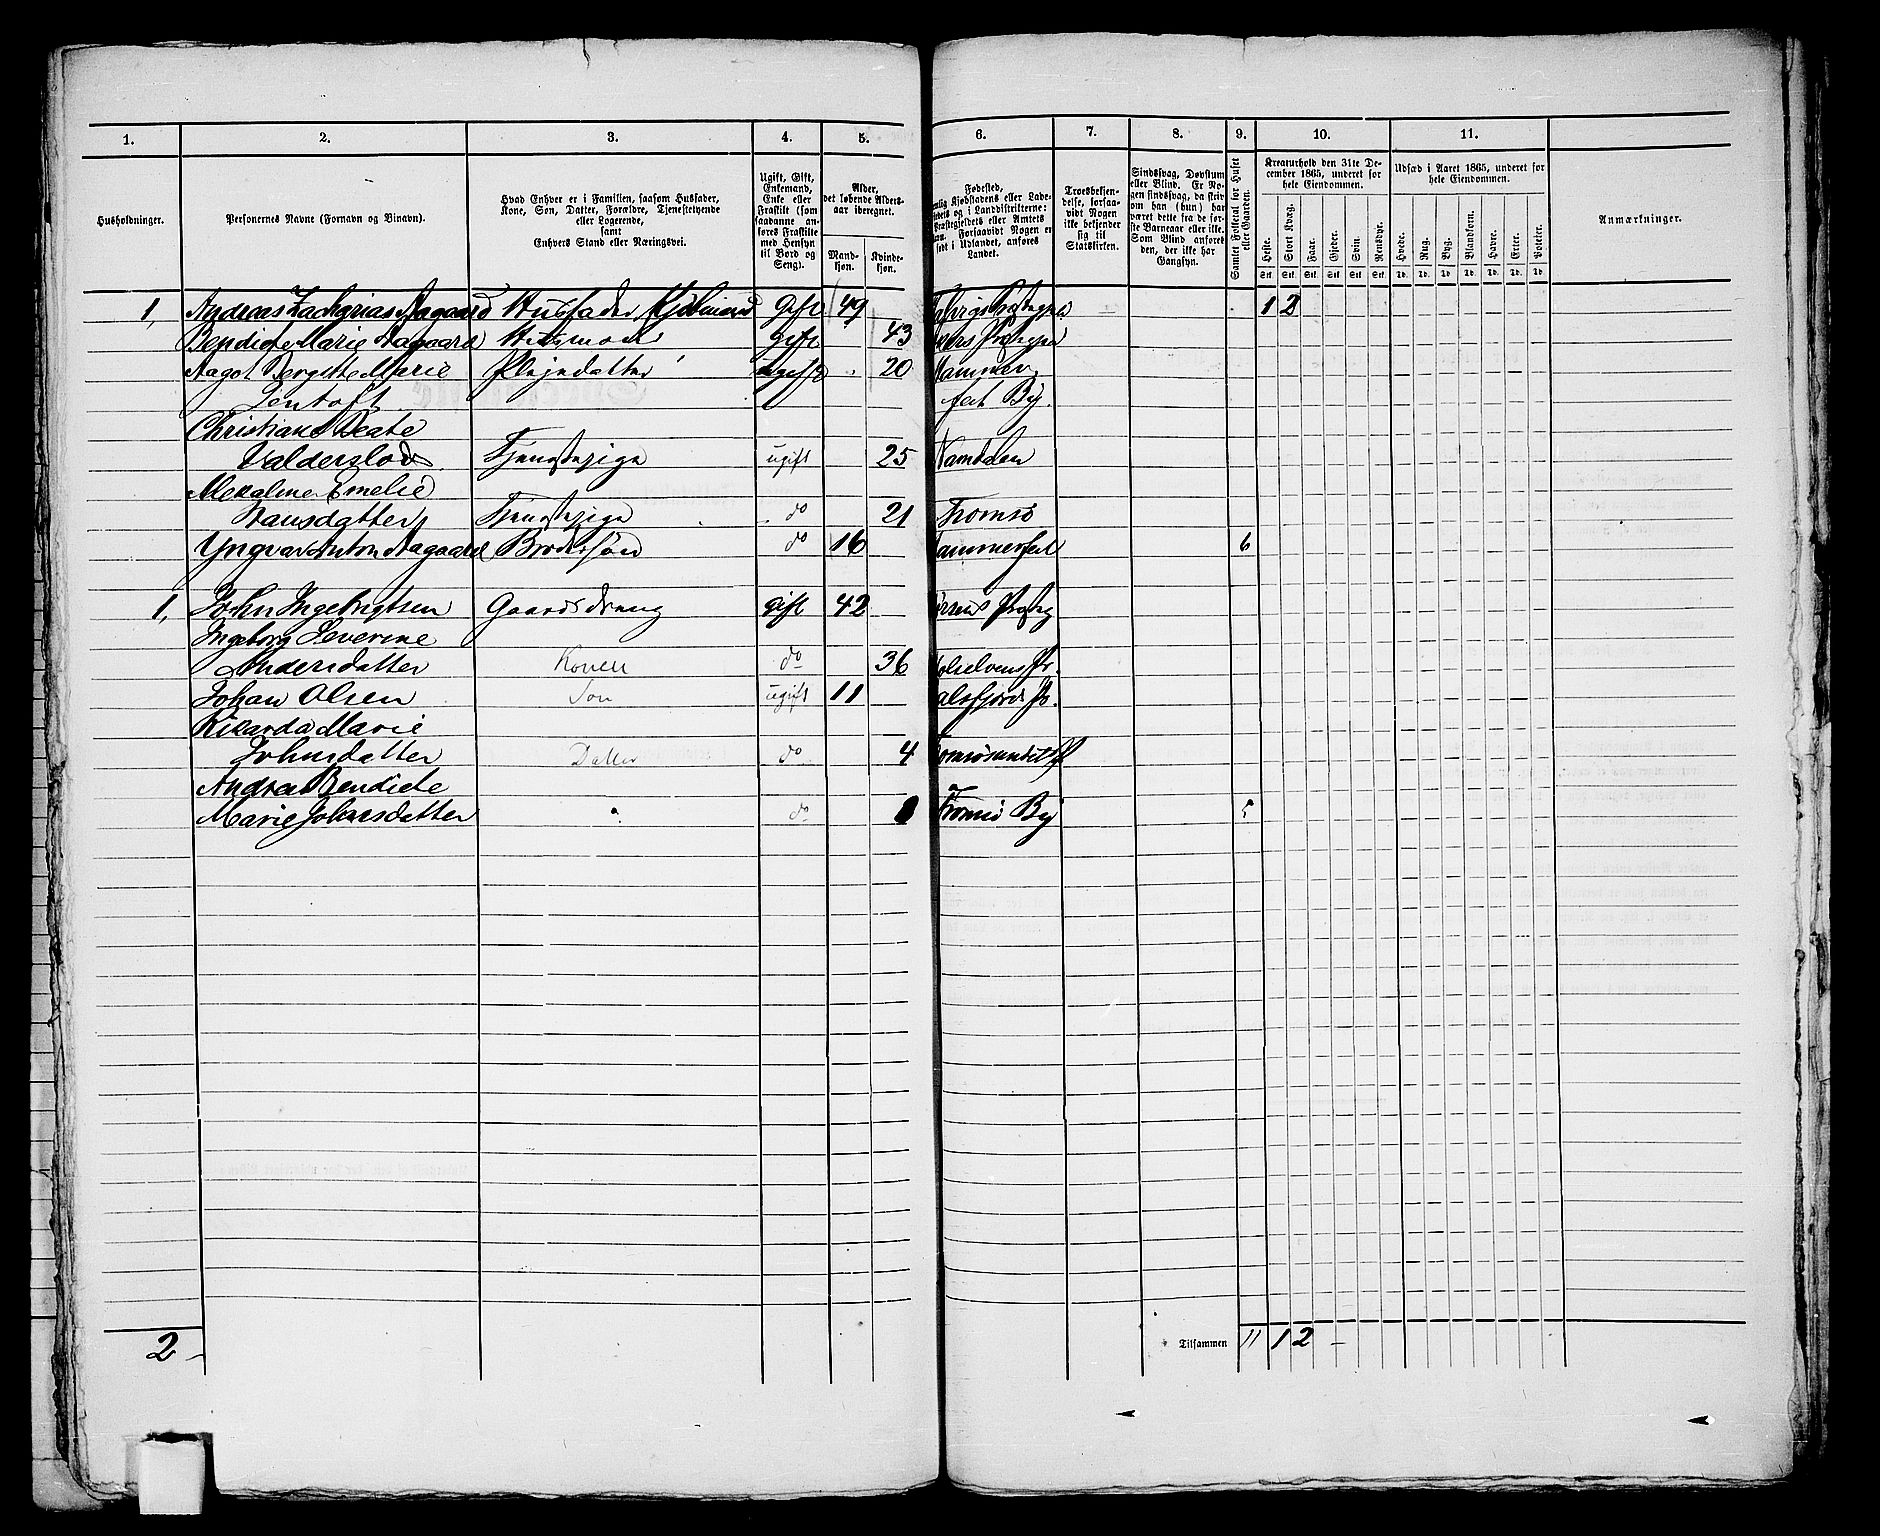 1. 2. 3. 4. 5. 6. 7. 8. 9. 10. 11.
Husholdninger.
Personernes Navne (Fornavn og Binavn).
Hvad Enhver er i Familien, saasom Husfader,
Kone, Søn, Datter, Forældre, Tjenestetyende
eller Logerende,
samt
Enhvers Stand eller Næringsvei.
Ugift, Gift,
Enkemand,
Enke eller
Fraskilt (som
saadanne an-
føres Fraskilte
med Hensyn
til Bord og
Seng).
Alder,
det løbende Alders-
aar iberegnet.
Mand-
kjøn.
Kvinde-
kjøn.
Fødested,
Kjøbstadens eller Lade-
og i Landdistrikterne:
Præstegjeldets eller Amtets
Forsaavidt Nogen er
født i Udlandet, anføres
Landet.
Troesbekjen-
delse, forsaa-
vidt Nogen
ikke bekjender
sig til
Statskirken.
Sindssvag, Døvstum
eller Blind. Er No-
gen sindssvag, da skriv
om han (hun) har
været dette fra de før-
ste Barneaar eller ei.
Som Blind anføres
den, der ikke har
Gangsyn.
Samlet Folketal for Huset
eller Gaarden.
Kreaturhold den 31te De-
cember 1865, underet for
hele Eiendommen.
Heste. Stort Kvæg. Faar. Gjeder. Svin. Rensdyr.
Stk. Stk. Stk. Stk. Stk. Stk.
Udsæd i Aaret 1865, underet for
hele Eiendommen.
Hvede. Rug. Byg. Blandkorn. Havre. Erter. Poteter.
Td. Td. Td. Td. Td. Td. Td.
Anmærkninger.
1, Andreas Zacharias Aagaard Husfader Kjøbmand Gift 49 1 2
Bendicte Marie Aagaard Husmoder gift 43
Aagot Bergitte Marie Plejedatter ugift 20 Hammer
Jentoft fest By.
Christiane Beate
Tjenestepige ugift 25 Namdalen
Emelie
Hansdatter Tjenestepige do 21 Tromsø
Yngvar Anton Aagaard Brodersøn do 16 Hammerfest 6
1, John Ingebrigtsen Gaardsdreng gift 42
Ingeborg Severine
Andersdatter Konen do 36
Johan Olsen Søn ugift 11 alsfjord Pr.
Rikarda Marie
Johnsdatter Datter do 4 Tromsøsundet
Andrea Bendicte
Marie Johnsdatter do 1 Tromsø By 5
2 Tilsammen 11 1 2